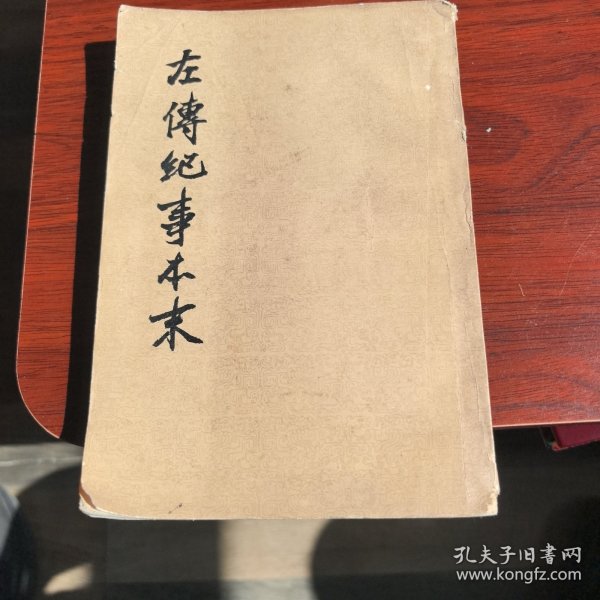 左傳紀事本末
孔夫子旧書网
www.kongfz.com